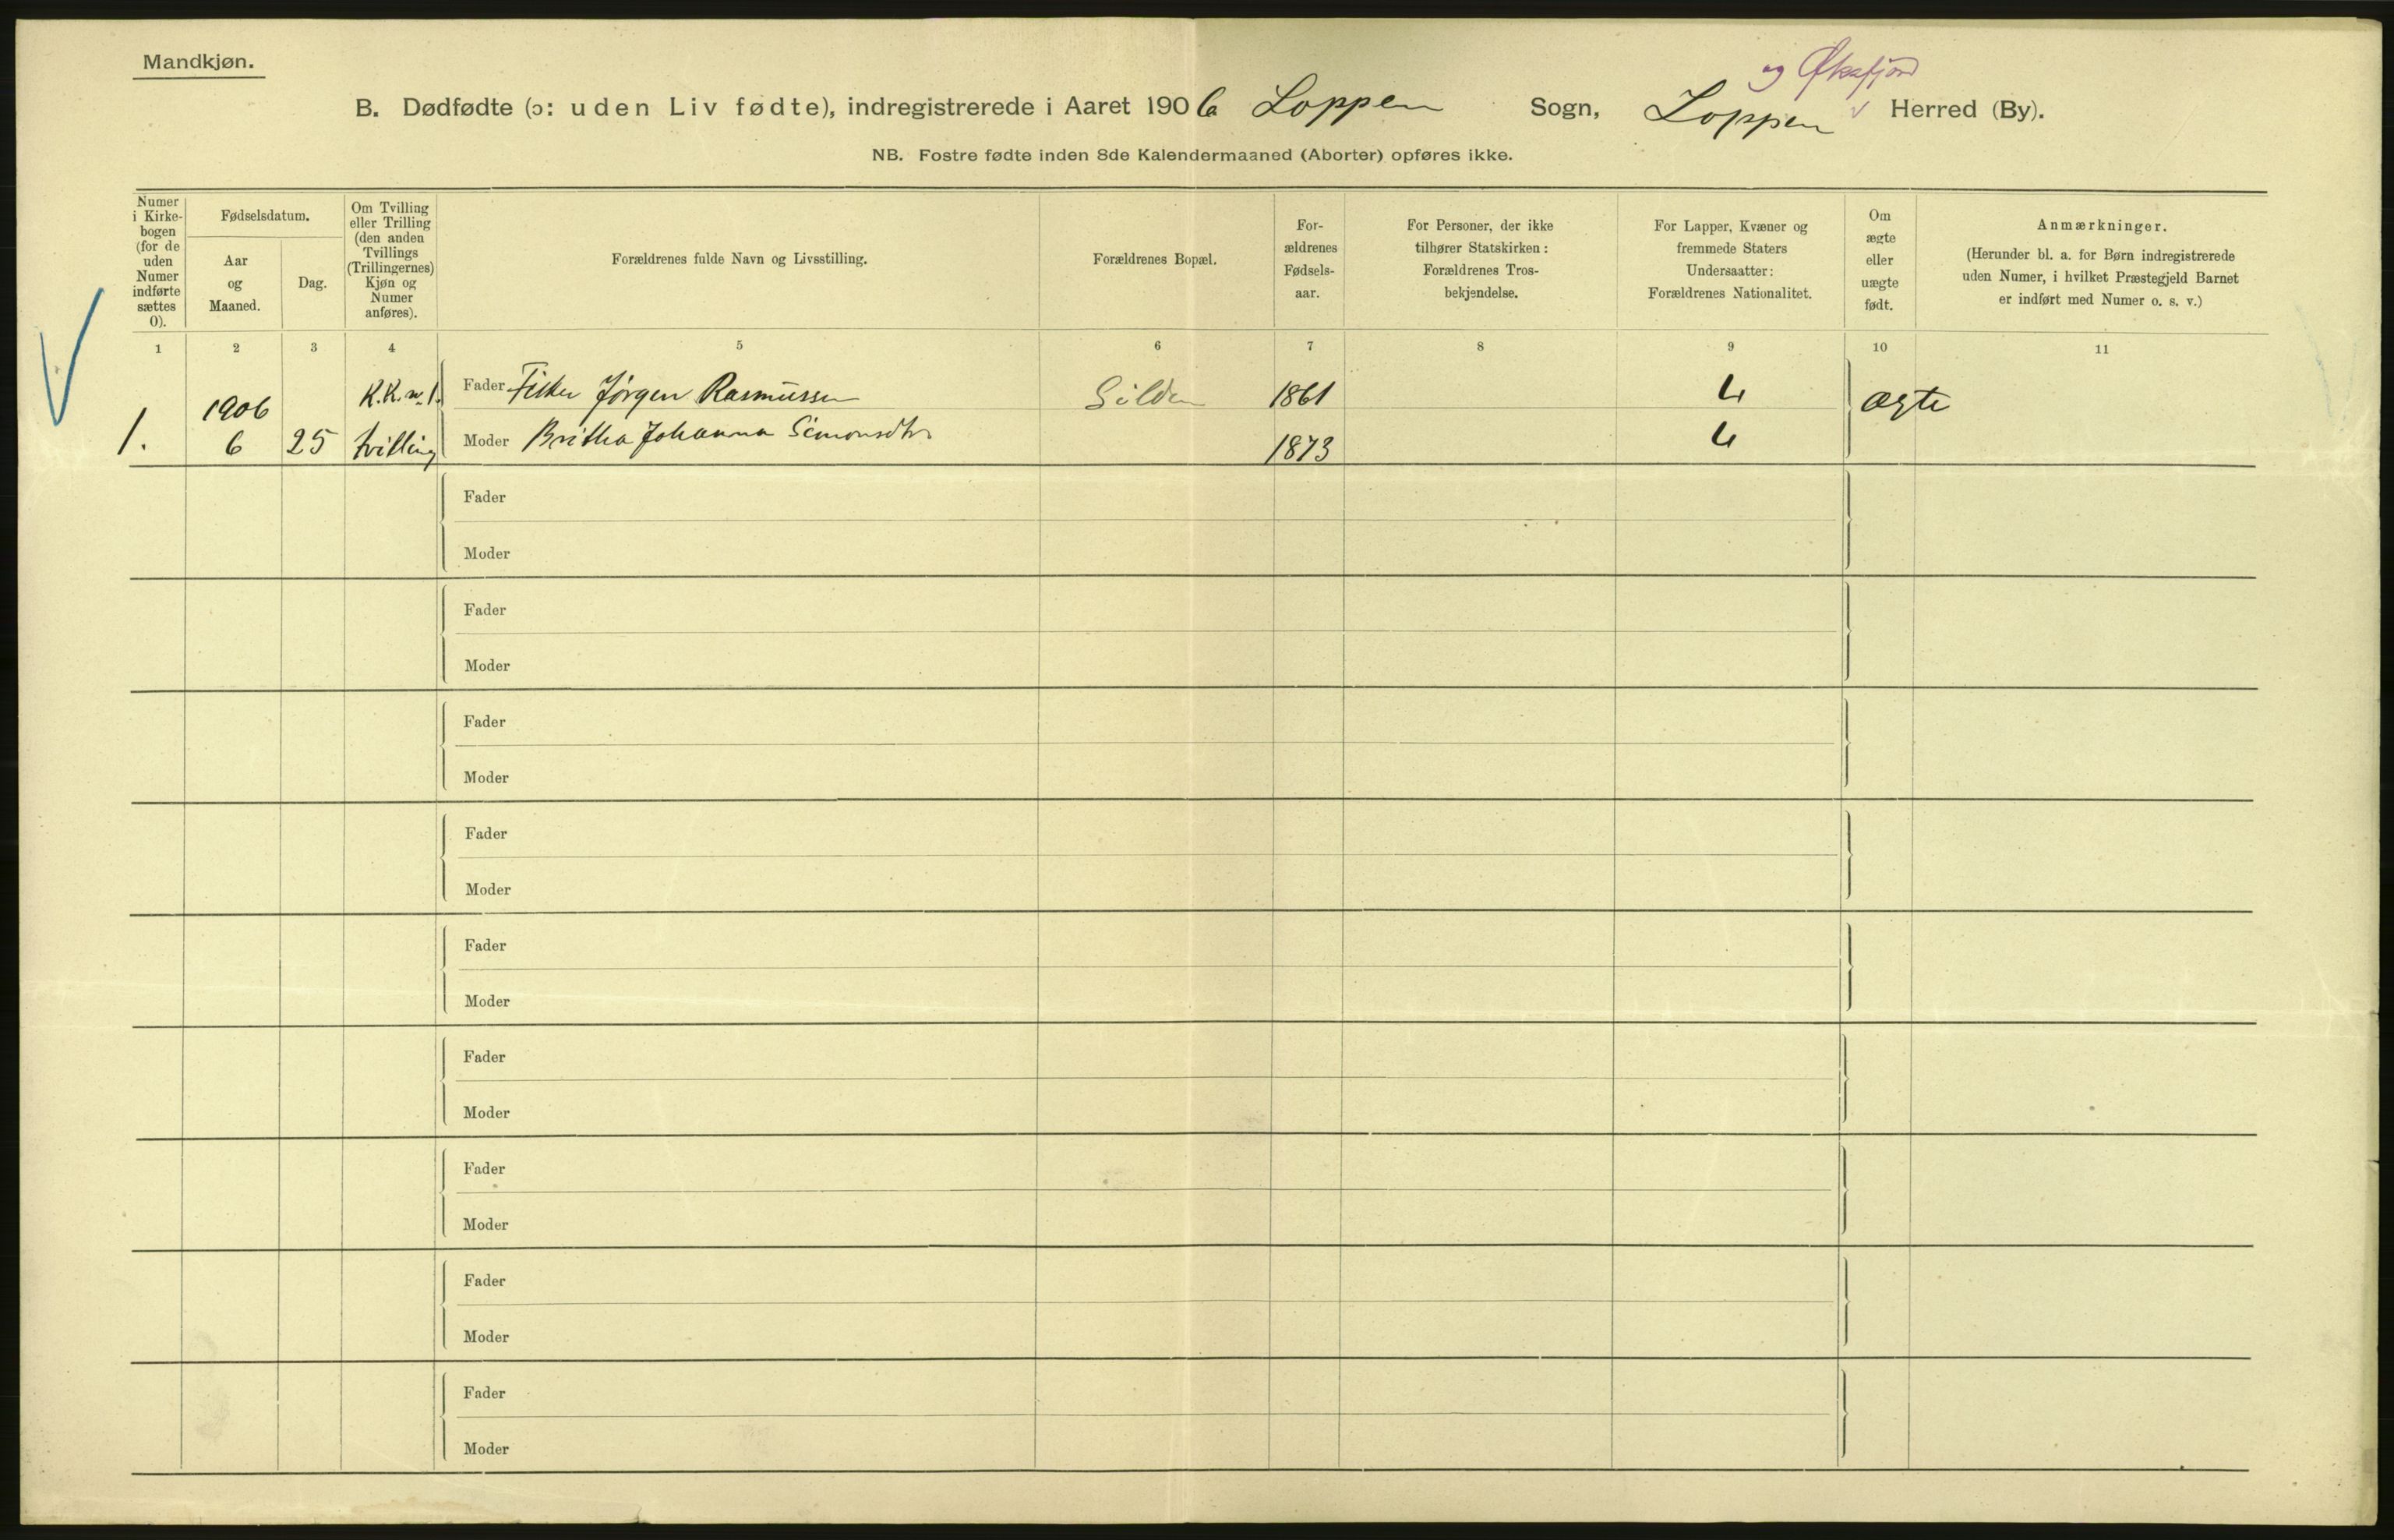 Mandkjøn.
og Øksfjord
B. Dødfødte (ɔ: uden Liv fødte), indregistrerede i Aaret 1906 Loppen Sogn, Loppen Herred (By).
NB. Fostre fødte inden 8de Kalendermaaned (Aborter) opføres ikke.
Numer i Kirke-bogen (for de uden Numer indførte sættes 0).
Fødselsdatum.
Aar og Maaned.
Dag.
Om Tvilling eller Trilling (den anden Tvillings (Trillingernes) Kjøn og Numer anføres).
Forældrenes fulde Navn og Livsstilling.
Forældrenes Bopæl.
For-ældrenes Fødsels-aar.
For Personer, der ikke tilhører Statskirken: Forældrenes Tros-bekjendelse.
For Lapper, Kvæner og fremmede Staters Undersaatter: Forældrenes Nationalitet.
Om ægte eller uægte født.
Anmærkninger.
(Herunder bl. a. for Børn indregistrerede uden Numer, i hvilket Præstegjeld Barnet er indført med Numer o. s. v.)
1 2 3 4 5 6 7 8 9 10 11
1906 K.K. n. 1. Fader Fisker Jørgen Rasmussen Silden 1861 4 ægte
1. 6 25 tvilling Moder Britha Johanna Simonsdtr 1873 4
Fader
Moder
Fader
Moder
Fader
Moder
Fader
Moder
Fader
Moder
Fader
Moder
Fader
Moder
Fader
Moder
Fader
Moder